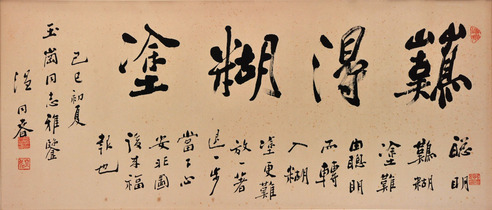 難得糊塗
聰明
難糊
塗難
由聰明
而轉
入糊
塗更難
放一著
退一步
當下心
安非圖
後來福
報也
己巳初夏
玉崗同志雅鑒
同春